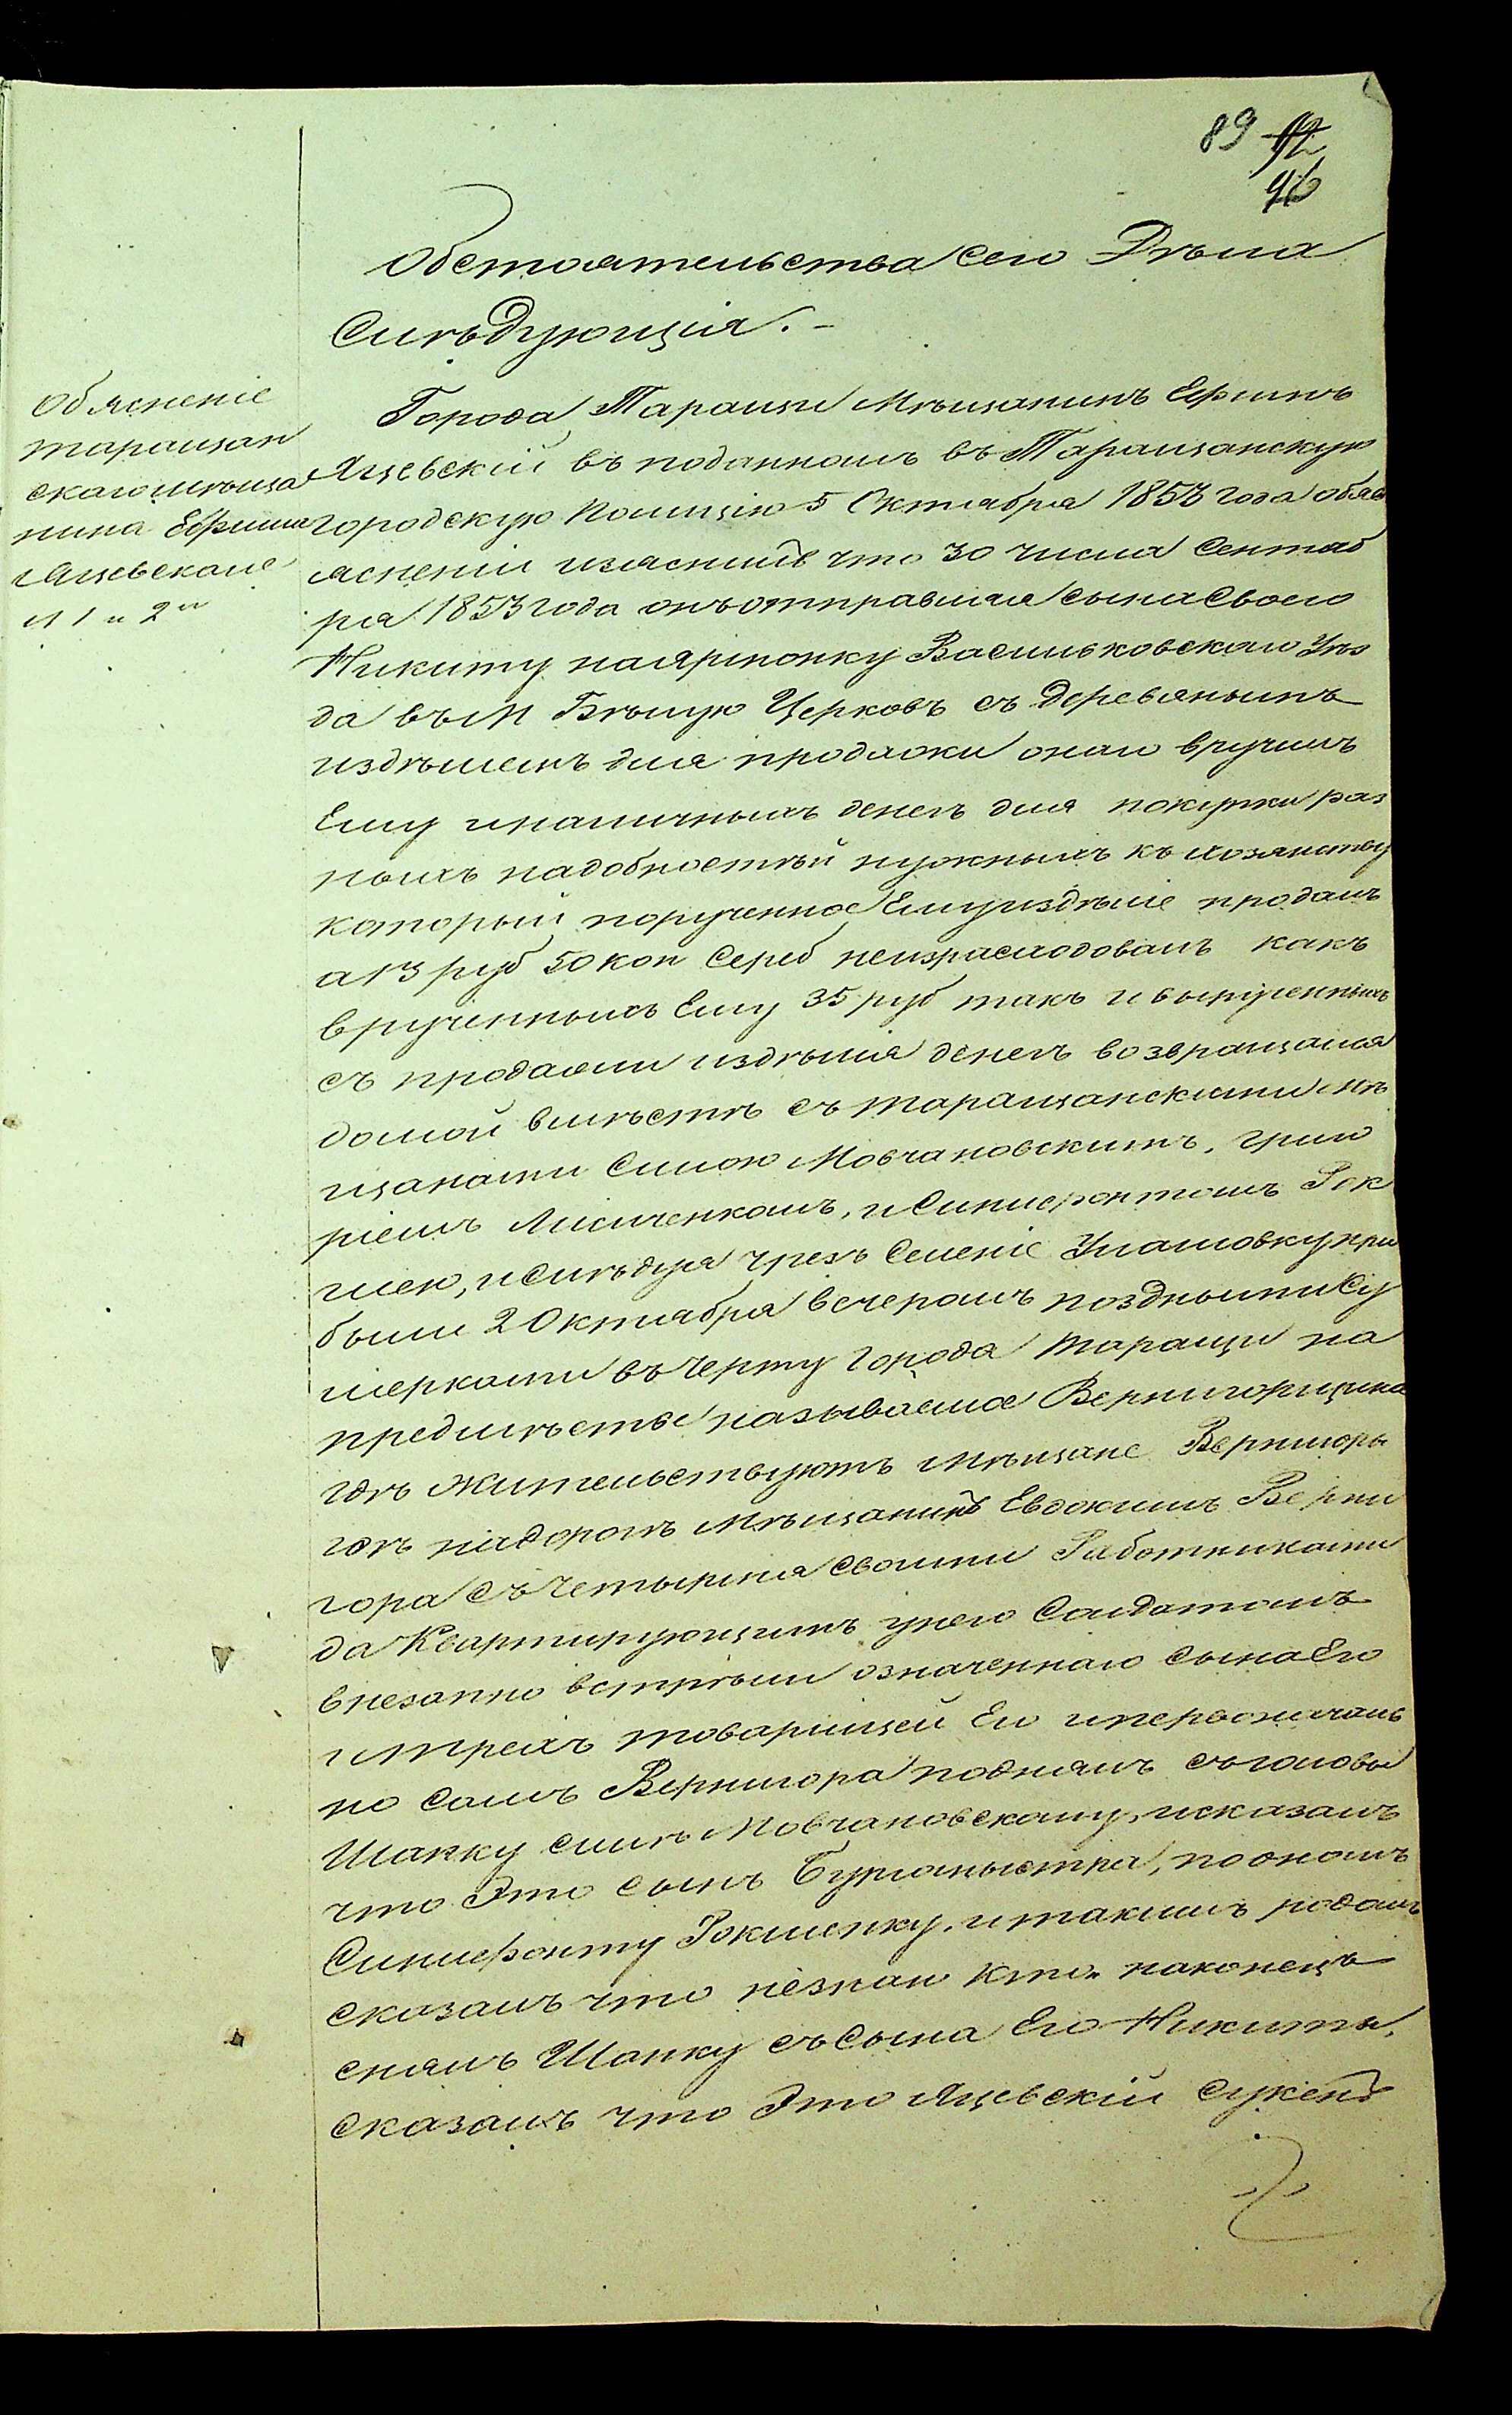 89 12
96
Обстоятельства сего Дѣла
Слѣдующія. -
Объясненіе
таращан
скаго мѣща
нина Ефима
Яцевскаго
л 1 и 2й
Города Таращи Мѣщанинъ Ефимъ
Яцевскій въ поданномъ въ Таращанскую
городскую Полицію 5 Октября 1853 года объя
ясненіи изяснилъ что 30 числа Сентяб
ря 1853 года онъ отправилъ сына своего
Никиту на ярмонку Васильковскаго Уѣз
да въ М Бѣлую Церковъ съ деревянымъ
издѣлемъ для продажи онаго вручилъ
Ему и наличныхъ денегъ для покупки раз
ныхъ надобностѣй нужныхъ къ хозяйству
который порученное Ему издѣліе продалъ
а 13 руб 50 коп Сереб неизрасходовалъ какъ
врученныхъ Ему 35 руб такъ и вырученныхъ
съ продажи издѣлія денегъ возвращался
домой вмѣстѣ съ таращанскими мѣ
щанами Симою Мовчановскимъ, Григо
ріемъ Лисиченкомъ, и Силиеронтомъ Рок
лек, и слѣдуя чрезъ Селеніе Улашовку при
были 2 Октября вечеромъ поздными Су
мерками въ черту города Таращи на
предмѣстье называемое Вернигорщина
гдѣ жительствуютъ мѣщане Вернигоры
гдѣ на дорогѣ мѣщанинъ Евдокимъ Верни
гора съ четырмя своими Работниками
да Квартирующимъ у него Солдатомъ
внезапно встрѣли означеннаго сына Его
и трехъ товарищей Его и первоначаль
но самъ Вернигора поднялъ съ головы
Шапку Симѣ Мовчановскому, и сказалъ
что Это сынъ Бургомыстра, по ономъ
Силиеронту Рокленку, и такимъ родомъ
сказалъ что незнаю кто. наконецъ
снялъ Шапку съ сына Его Никиты,
сказалъ что Это Яцевскій сукенъ